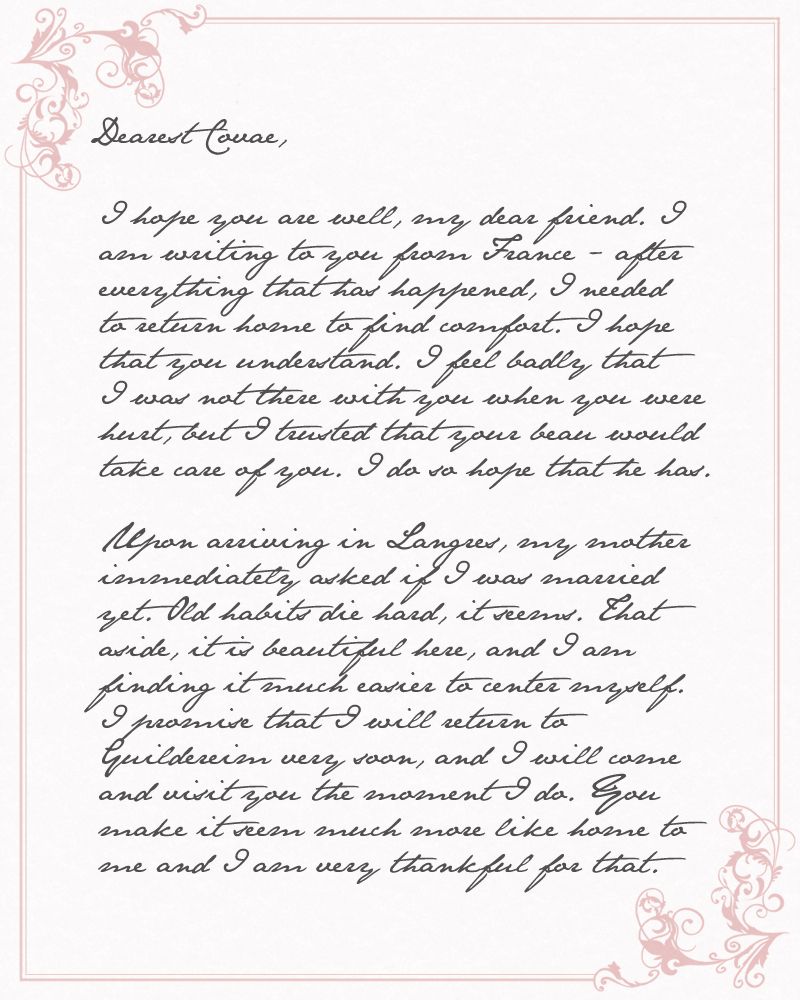 Dearest Covae,
I hope you are well, my dear friend. I
am writing to you from France - after
everything that has happened, I needed
to return home to find comfort. I hope
that you understand. I feel badly that
I was not there with you when you were
hurt, but I trusted that your beau would
take care of you. I do so hope that he has.
Upon arriving in Langres, my mother
immediately asked if I was married
yet. Old habits die hard, it seems. That
aside, it is beautiful here, and I am
finding it much easier to center myself.
I promise that I will return to
Guildereim very soon, and I will come
and visit you the moment I do. You
make it seem much more like home to
me and I am very thankful for that.